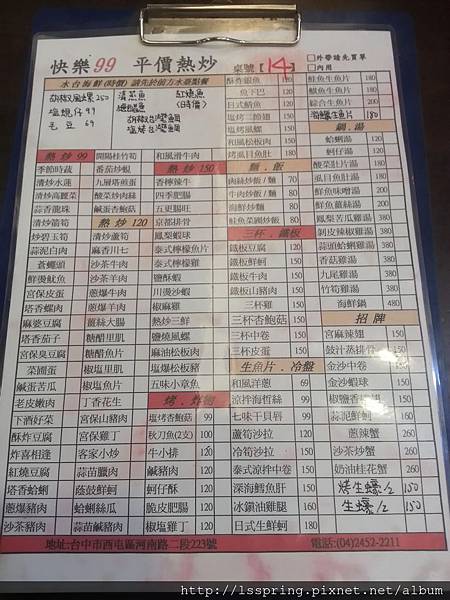 快樂99 平價熱炒 桌號【14】
□外帶請先買單
□內用
水台海鮮(時價) 請先於前方水臺點餐
胡椒鳳螺 250 清蒸魚 紅燒魚
塩焗仔 99 (時價)
毛豆 69 胡椒台灣鯛
塩烤台灣鯛
熱炒 99
季節時蔬
清炒水蓮
清炒高麗菜
蒜香龍珠
清炒箭筍
炒碧玉筍
蒜泥白肉
蒼蠅頭
宮保皮蛋
塔香螺肉
麻婆豆腐
塔香茄子
宮保臭豆腐
菜圃蛋
鹹蛋苦瓜
老皮嫩肉
下酒好菜
酥炸豆腐
炸喜相逢
紅燒豆腐
塔香蛤蜊
蔥爆豬肉
沙茶豬肉
開陽桂竹筍
番茄炒蛋
九層塔煎蛋
酸菜炒肉絲
鹹蛋杏鮑菇
熱炒 120
清炒蘆筍
麻香川七
沙茶牛肉
沙茶羊肉
蔥爆牛肉
蔥爆羊肉
薑絲大腸
糖醋里肌
糖醋魚片
椒塩里肌
椒塩魚片
丁香花生
宮保山豬肉
宮保雞丁
客家小炒
蒜苗臘肉
蔭鼓鮮蚵
蛤蜊絲瓜
蒜苗鹹豬肉
和風滑牛肉
熱炒 150
香檸辣牛
四季肥腸
五更腸旺
京都排骨
泰式檸檬魚片
泰式檸檬雞
鹽酥蝦
川燙沙蝦
椒麻雞
熱炒三鮮
鹽燒風螺
麻油松板肉
塩爆松板豬
五味小章魚
烤．炸物
塩烤杏鮑菇 99
秋刀魚(2支) 100
牛小排 120
鹹豬肉 120
蚵仔酥 120
脆皮肥腸 120
椒塩雞丁 120
酥炸銀魚 120
魚下巴 120
日式鯖魚 120
塩烤二節翅 120
塩烤風螺 150
和風松板肉 150
烤虱目魚肚 180
麵．飯
肉絲炒飯／麵 70
牛肉炒飯／麵 80
海鮮炒麵 80
鮭魚菜圃炒飯 80
三杯．鐵板
鐵板豆腐 120
鐵板鮮蚵 150
鐵板牛肉 150
鐵板山豬肉 150
三杯雞 150
三杯杏鮑菇 150
三杯中卷 150
三杯皮蛋 150
生魚片．冷盤
和風洋蔥 69
涼拌海哲絲 99
七味干貝唇 99
蘆筍沙拉 120
冷筍沙拉 150
泰式涼拌中卷 150
深海鱈魚肝 150
冰鎮油雞腿 160
日式生鮮蚵 160
鮭魚生魚片 180
旗魚生魚片 180
綜合生魚片 200
海鱺生魚片 180
鍋．湯
蛤蜊湯 180
蚵仔湯 180
酸菜肚片湯 180
虱目魚肚湯 180
鮮魚味噌湯 200
酸菜鮮蚵湯 200
鳳梨苦瓜雞湯 380
剝皮辣椒雞湯 380
蒜頭蛤蜊雞湯 380
香菇雞湯 380
九尾雞湯 380
竹筍雞湯 380
海鮮鍋 480
招牌
宮麻辣翅 150
豉汁蒸排骨 150
金沙中卷 150
金沙蝦球 150
椒鹽香檸 150
鳳梨蝦球 160
蒜泥鮮蚵 160
蔥辣蟹 260
沙茶炒蟹 260
奶油桂花蟹 260
烤生蠔/2 150
生蠔/2 150
地址:台中市西屯區河南路二段223號 電話:(04)2452-2211
http://lsspring.pixnet.net/album